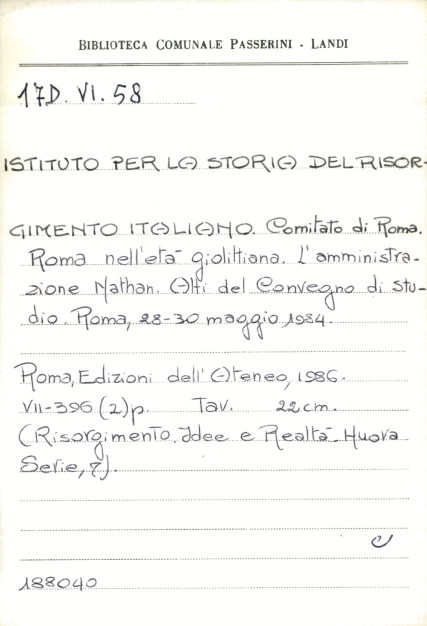 BIBLIOTECA COMUNALE PASSERINI - LANDI
17D. VI. 58
ISTITUTO PER LA STORIA DEL RISOR-
GIMENTO ITALIANO. Comitato di Roma.
Roma nell'età giolittiana. L'amministra-
zione Nathan. Atti del Convegno di stu-
dio. Roma, 28-30 maggio 1984.
Roma, Edizioni dell'Ateneo, 1986.
VII-396 (2) p. Tav. 22 cm.
(Risorgimento. Idee e Realtà. Nuova
Serie, 7).
188040